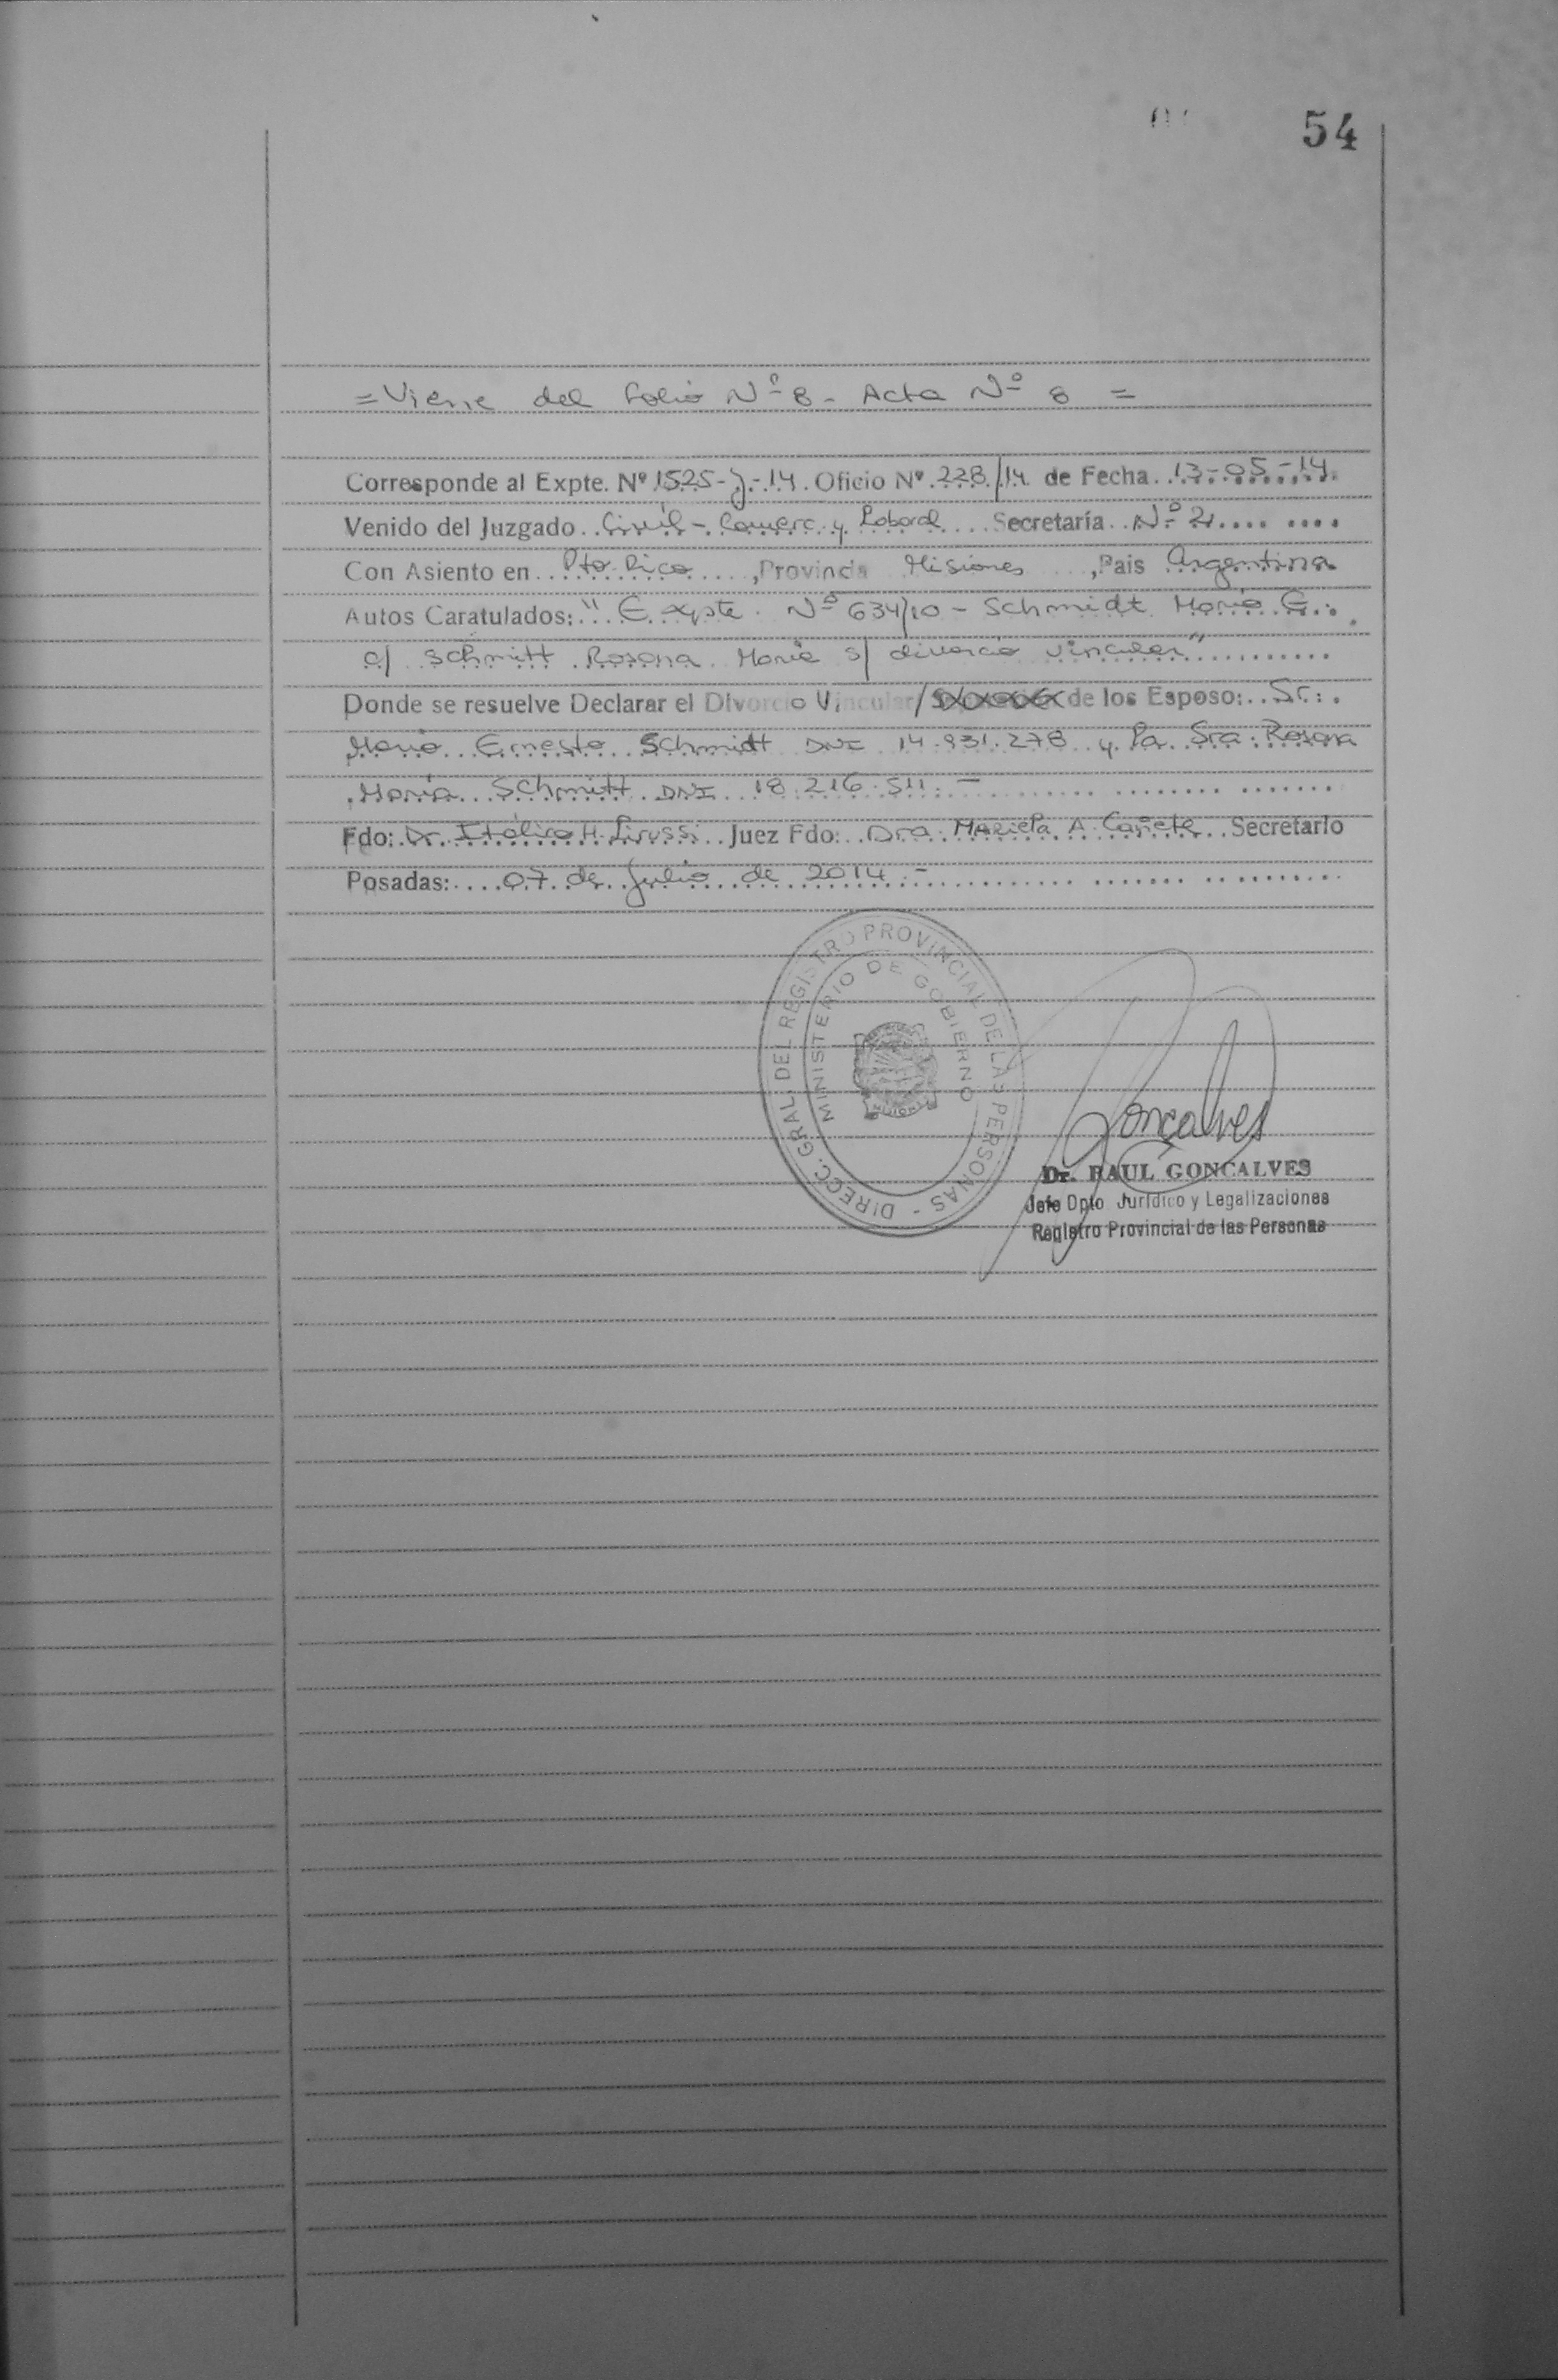 54
= Viene del folio Nº 8 - Acta Nº 8 =
Corresponde al Expte. Nº 1525-J-14. Oficio Nº 228/14 de Fecha 13-05-14.
Venido del Juzgado Civil - Comerc. y Laboral Secretaría Nº 2
Con Asiento en Pto. Rico, Provincia Misiones, Pais Argentina
Autos Caratulados: "Expte. Nº 634/10 - Schmidt Mario E.
c/ Schmitt Rosana Maria s/ divorcio vincular"
Donde se resuelve Declarar el Divorcio Vincular/ de los Esposo: Sr.
Mario Ernesto Schmidt DNI 14.931.278 y la Sra. Rosana
María Schmitt DNI 18.216.511.-
Fdo: Dr. Juez Fdo: Dra. Mariela A. Cañete Secretario
Posadas: 07 de Julio de 2014.-
DIRECC. GRAL. DEL REGISTRO PROVINCIAL DE LAS PERSONAS -
MINISTERIO DE GOBIERNO
Gonçalves
Dr. RAUL GONCALVES
Jefe Dpto. Jurídico y Legalizaciones
Registro Provincial de las Personas